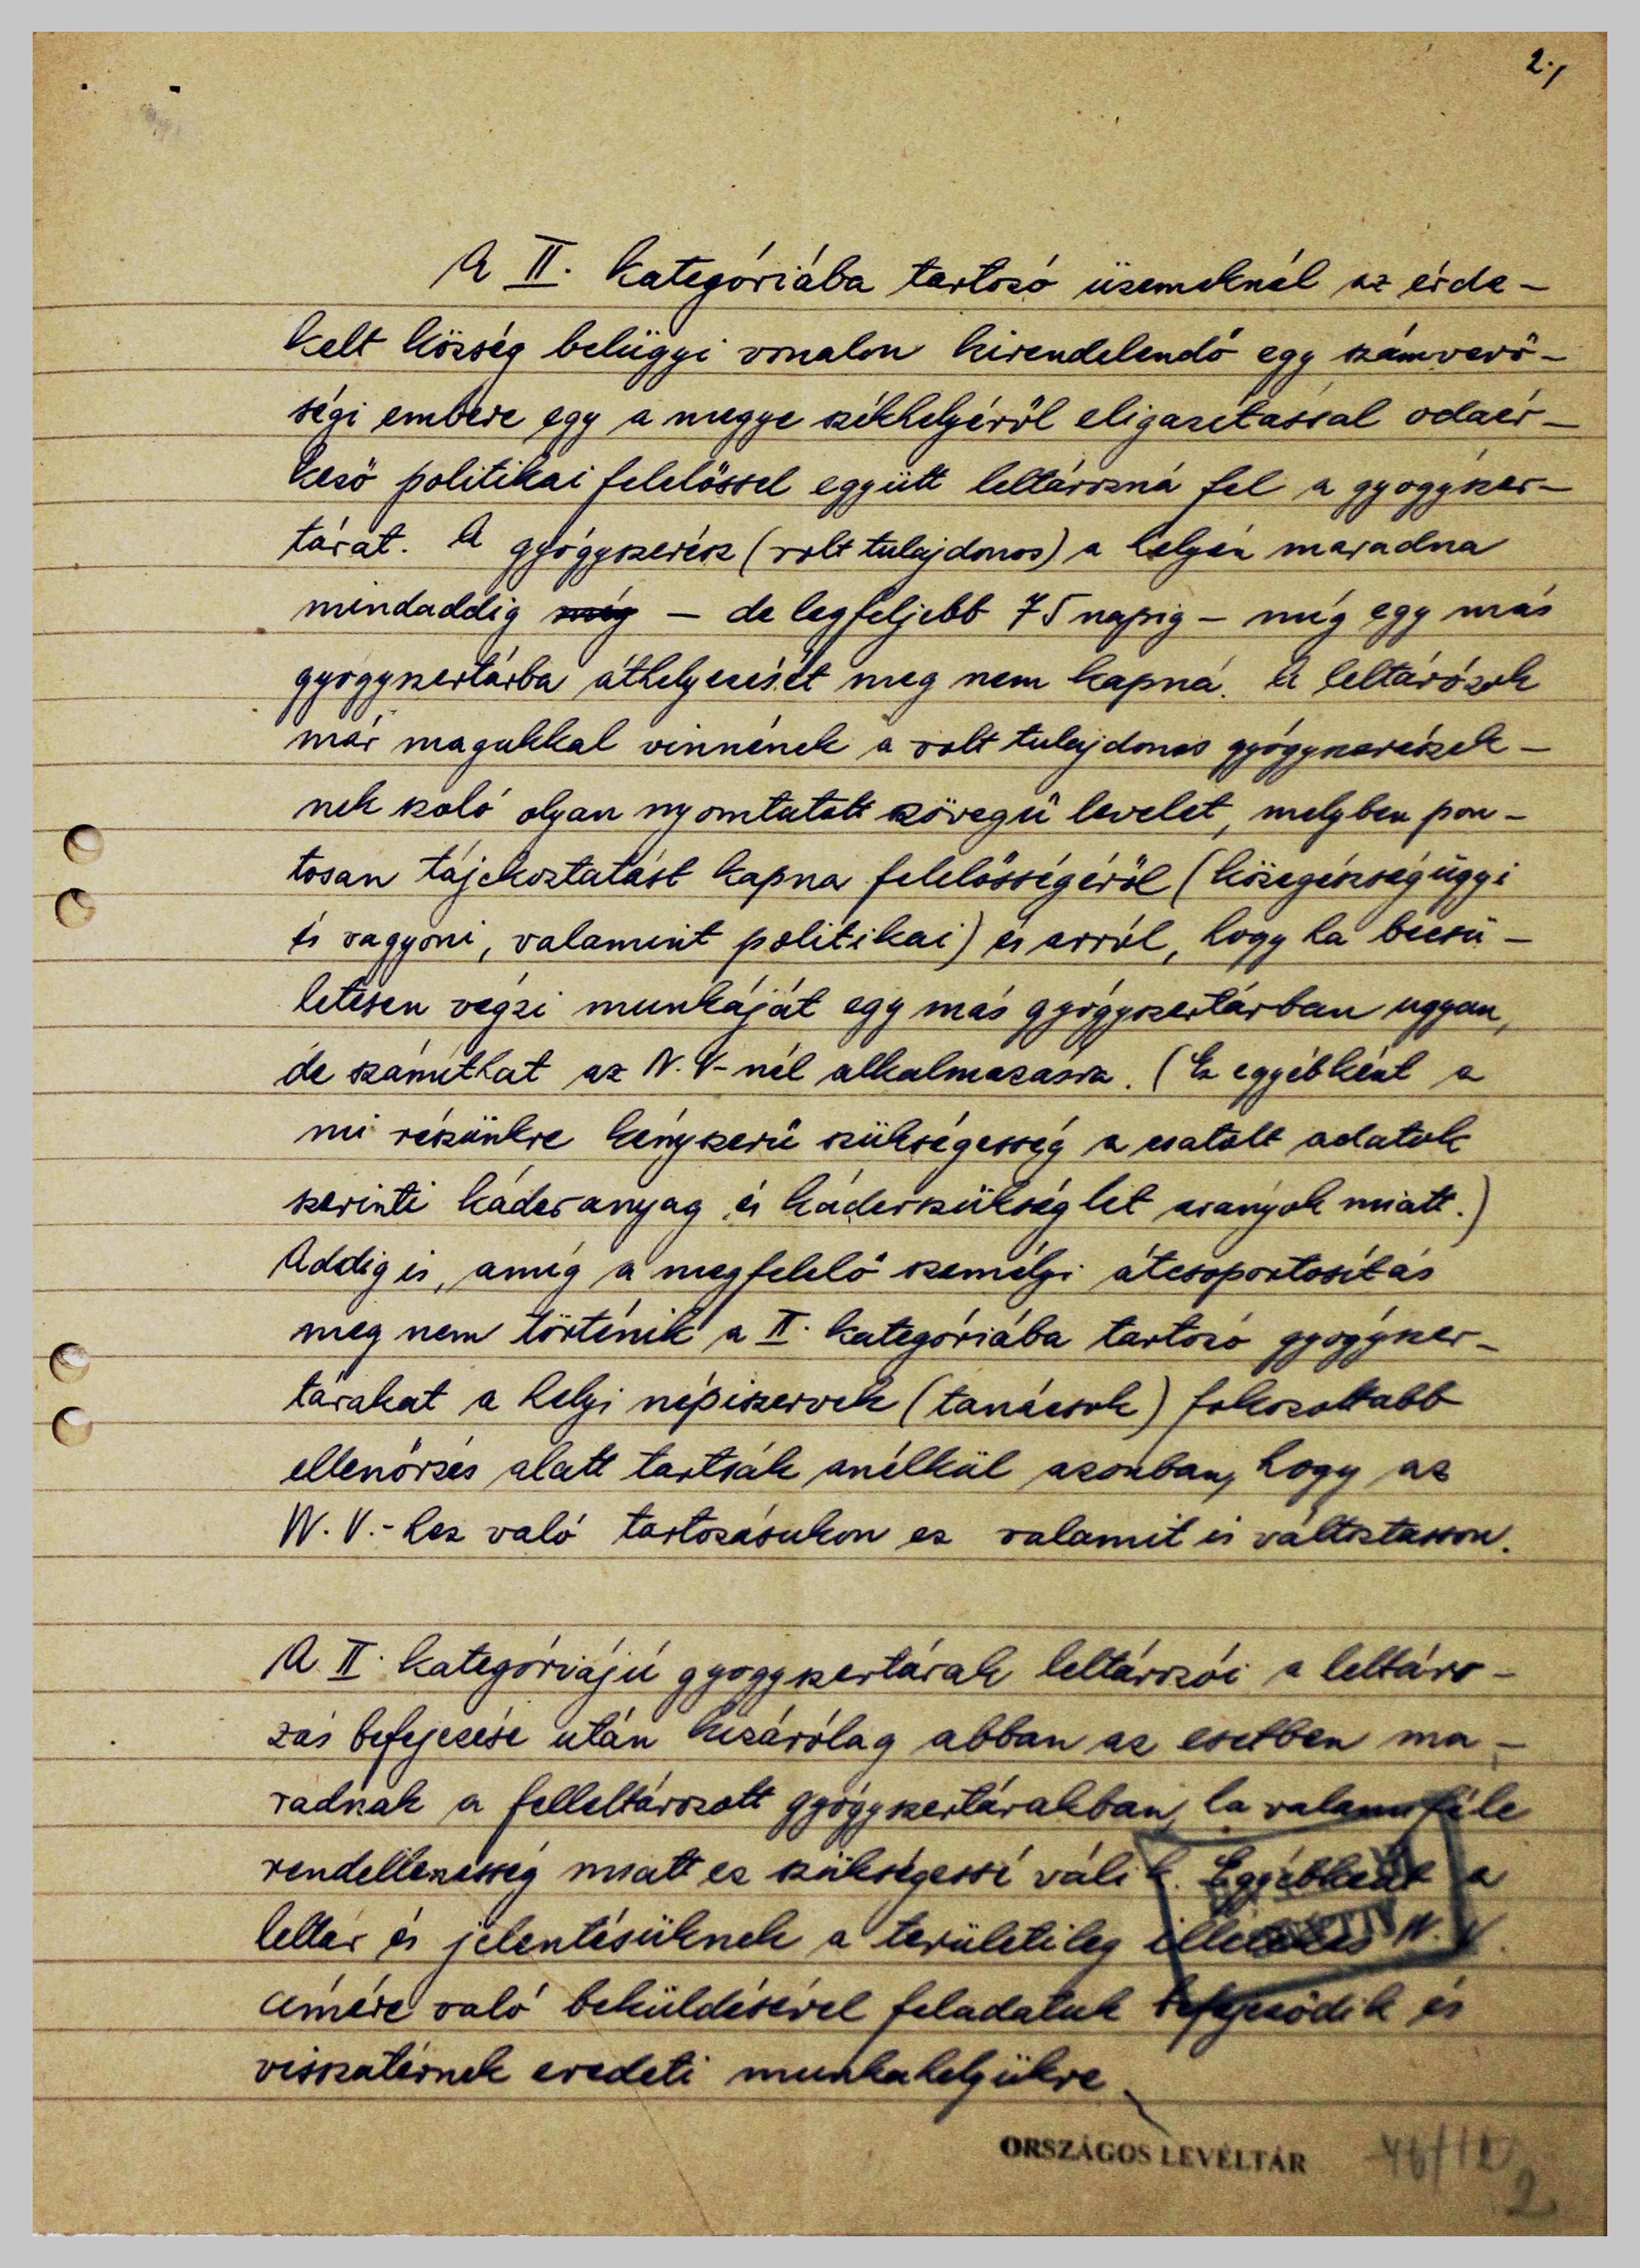 2./
A II. kategóriába tartozó üzemeknél az érde-
kelt község belügyi vonalon kirendelendő egy számverő-
ségi embere egy a megye székhelyéről eligazítással odaér-
kező politikai felelőssel együtt leltározná fel a gyógyszer-
tárat. A gyógyszerész (volt tulajdonos) a helyén maradna
mindaddig még — de legfeljebb 75 napig — míg egy más
gyógyszertárba áthelyezését meg nem kapná. A leltározók
már magukkal vinnének a volt tulajdonos gyógyszerészek-
nek szoló olyan nyomtatott szövegű levelet, melyben pon-
tosan tájékoztatást kapna felelősségéről (közegészségügyi
és vagyoni, valamint politikai) és arról, hogy ha becsü-
letesen végzi munkáját egy más gyógyszertárban ugyan,
de számíthat az N.V-nél alkalmazásra. (Ez egyébként a
mi részünkre kényszerű szükségesség a csatolt adatok
szerinti káderanyag és káderszükséglet arányok miatt.)
Addig is, amíg a megfelelő személyi átcsoportosítás
meg nem történik a II. kategóriába tartozó gyógyszer-
tárakat a helyi népiszervek (tanácsok) fokozottabb
ellenőrzés alatt tartsák anélkül azonban, hogy az
N.V.-hez való tartozásukon ez valamit is változtasson.
A II. kategóriájú gyógyszertárak leltározói a leltáro-
zás befejezése után kizárólag abban az esetben ma-
radnak a felleltározott gyógyszertárakban, ha valamiféle
rendellenesség miatt ez szükségessé válik. Egyébként a
leltár és jelentésüknek a területileg illetékes N.V.
címére való beküldésével feladatuk befejeződik és
visszatérnek eredeti munkahelyükre
ORSZÁGOS LEVÉLTÁR
2